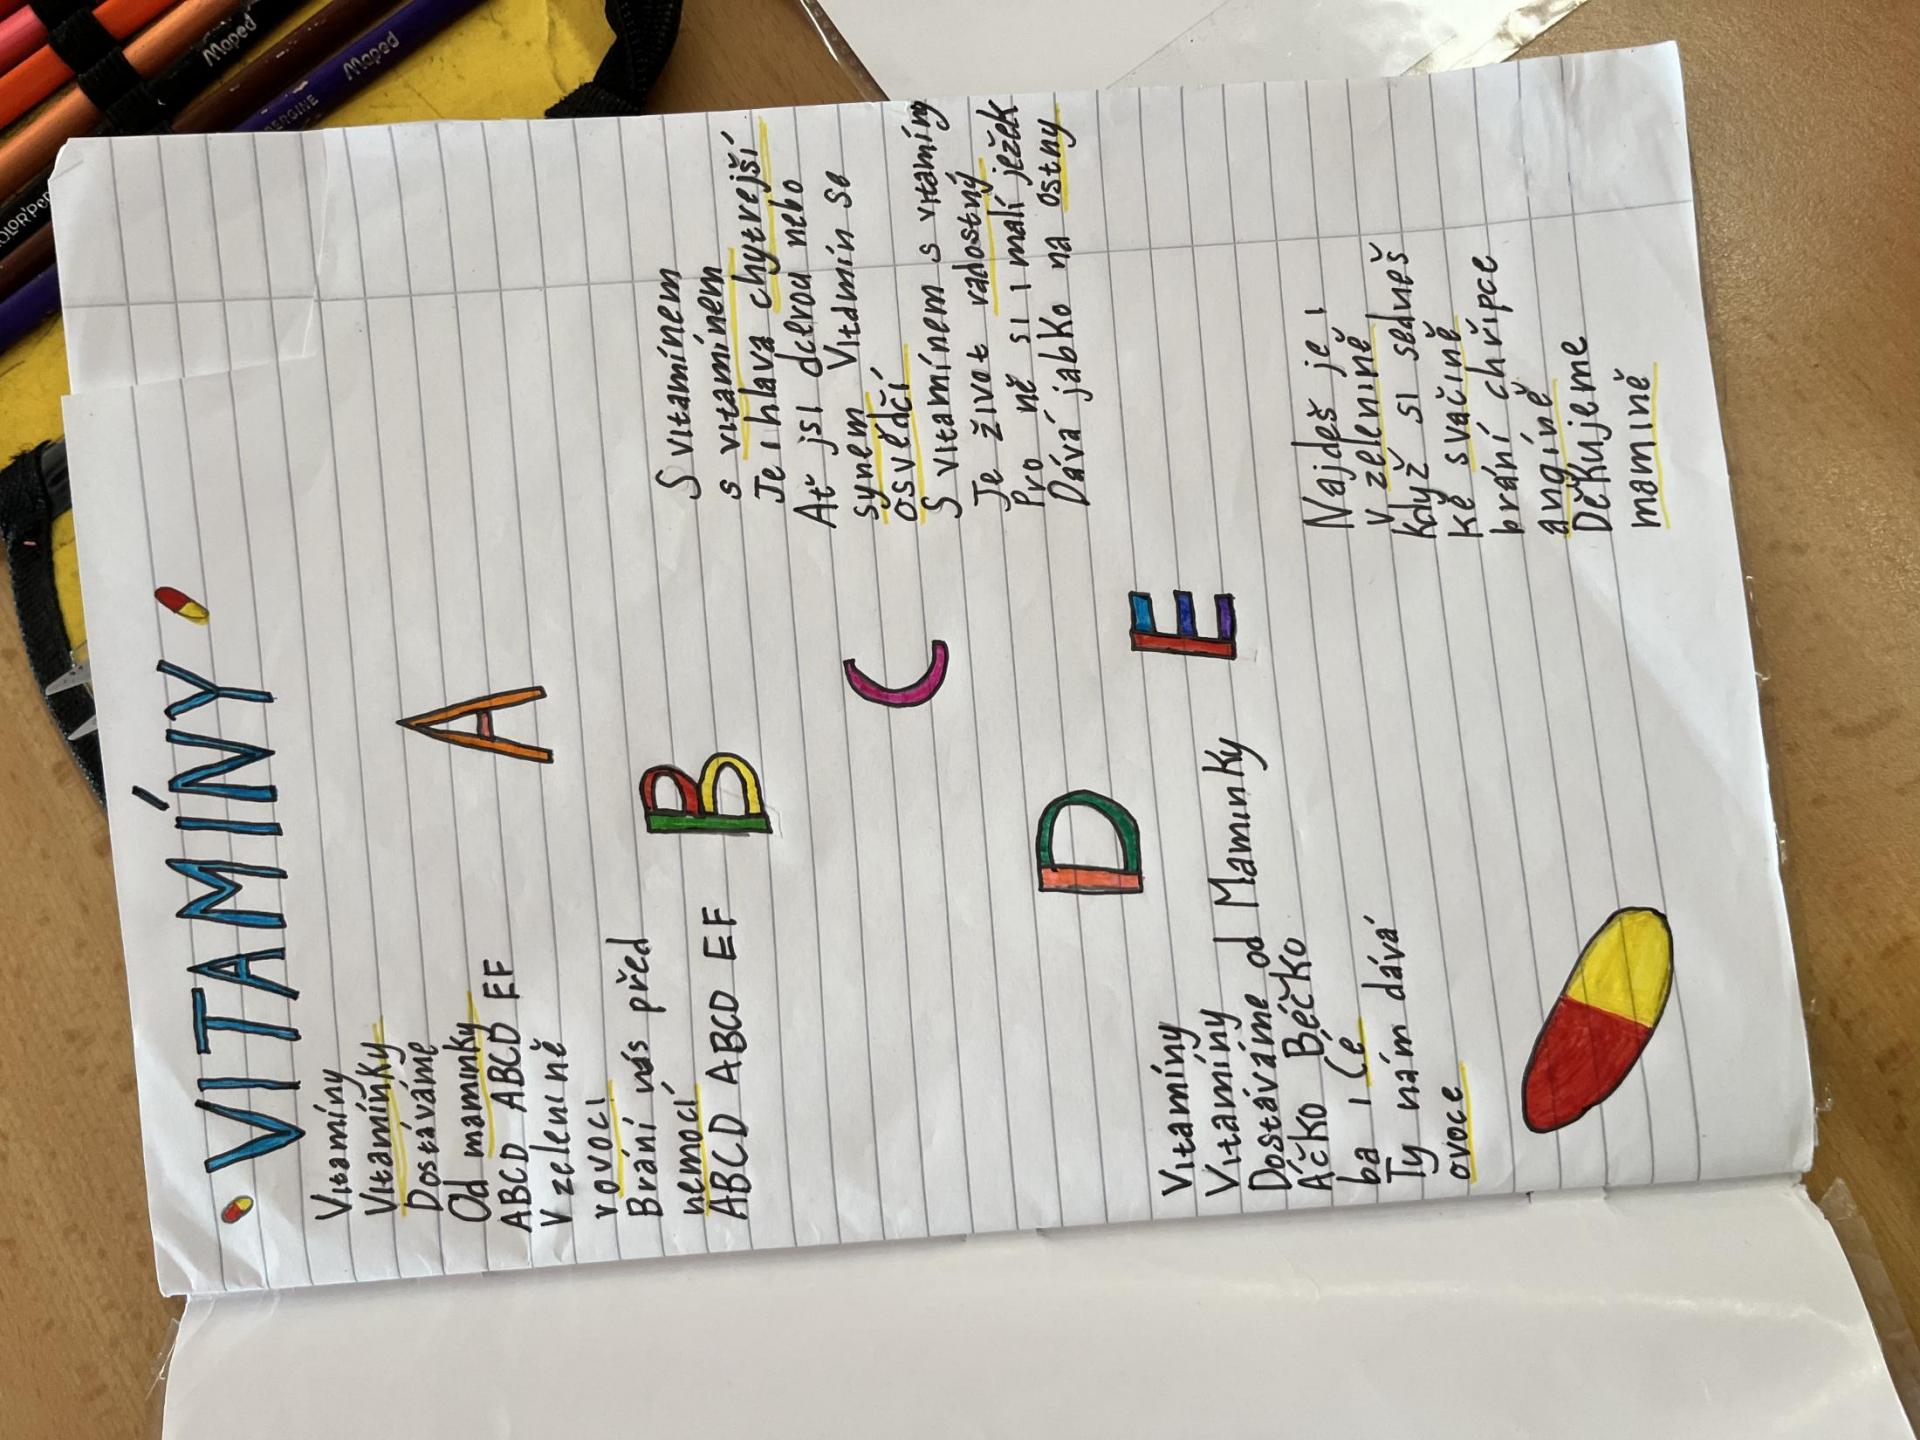 VITAMÍNY
Vitamíny
Vitamínky
Dostáváme
Od maminky
ABCD ABCD EF
V zelenině
v ovoci
Brání nás před
nemocí
ABCD ABCD EF
A
B
C
D
E
S vitamínem
s vitamínem
Je i hlava chytrejší
Ať jsi dcerou nebo
synem Vitamín se
osvědčí
S vitamínem s vitamíny
Je život radostný
Pro ně si i malí ježek
Dává jabko na ostny
Vitamíny
Vitamíny
Dostáváme od Maminky
Áčko Béčko
ba i Cé
Ty nám dává
ovoce
Najdeš je i
v zelenině
když si sedneš
ke svačině
brání chřipce
angíně
Děkujeme
mamině
Maped
Maped